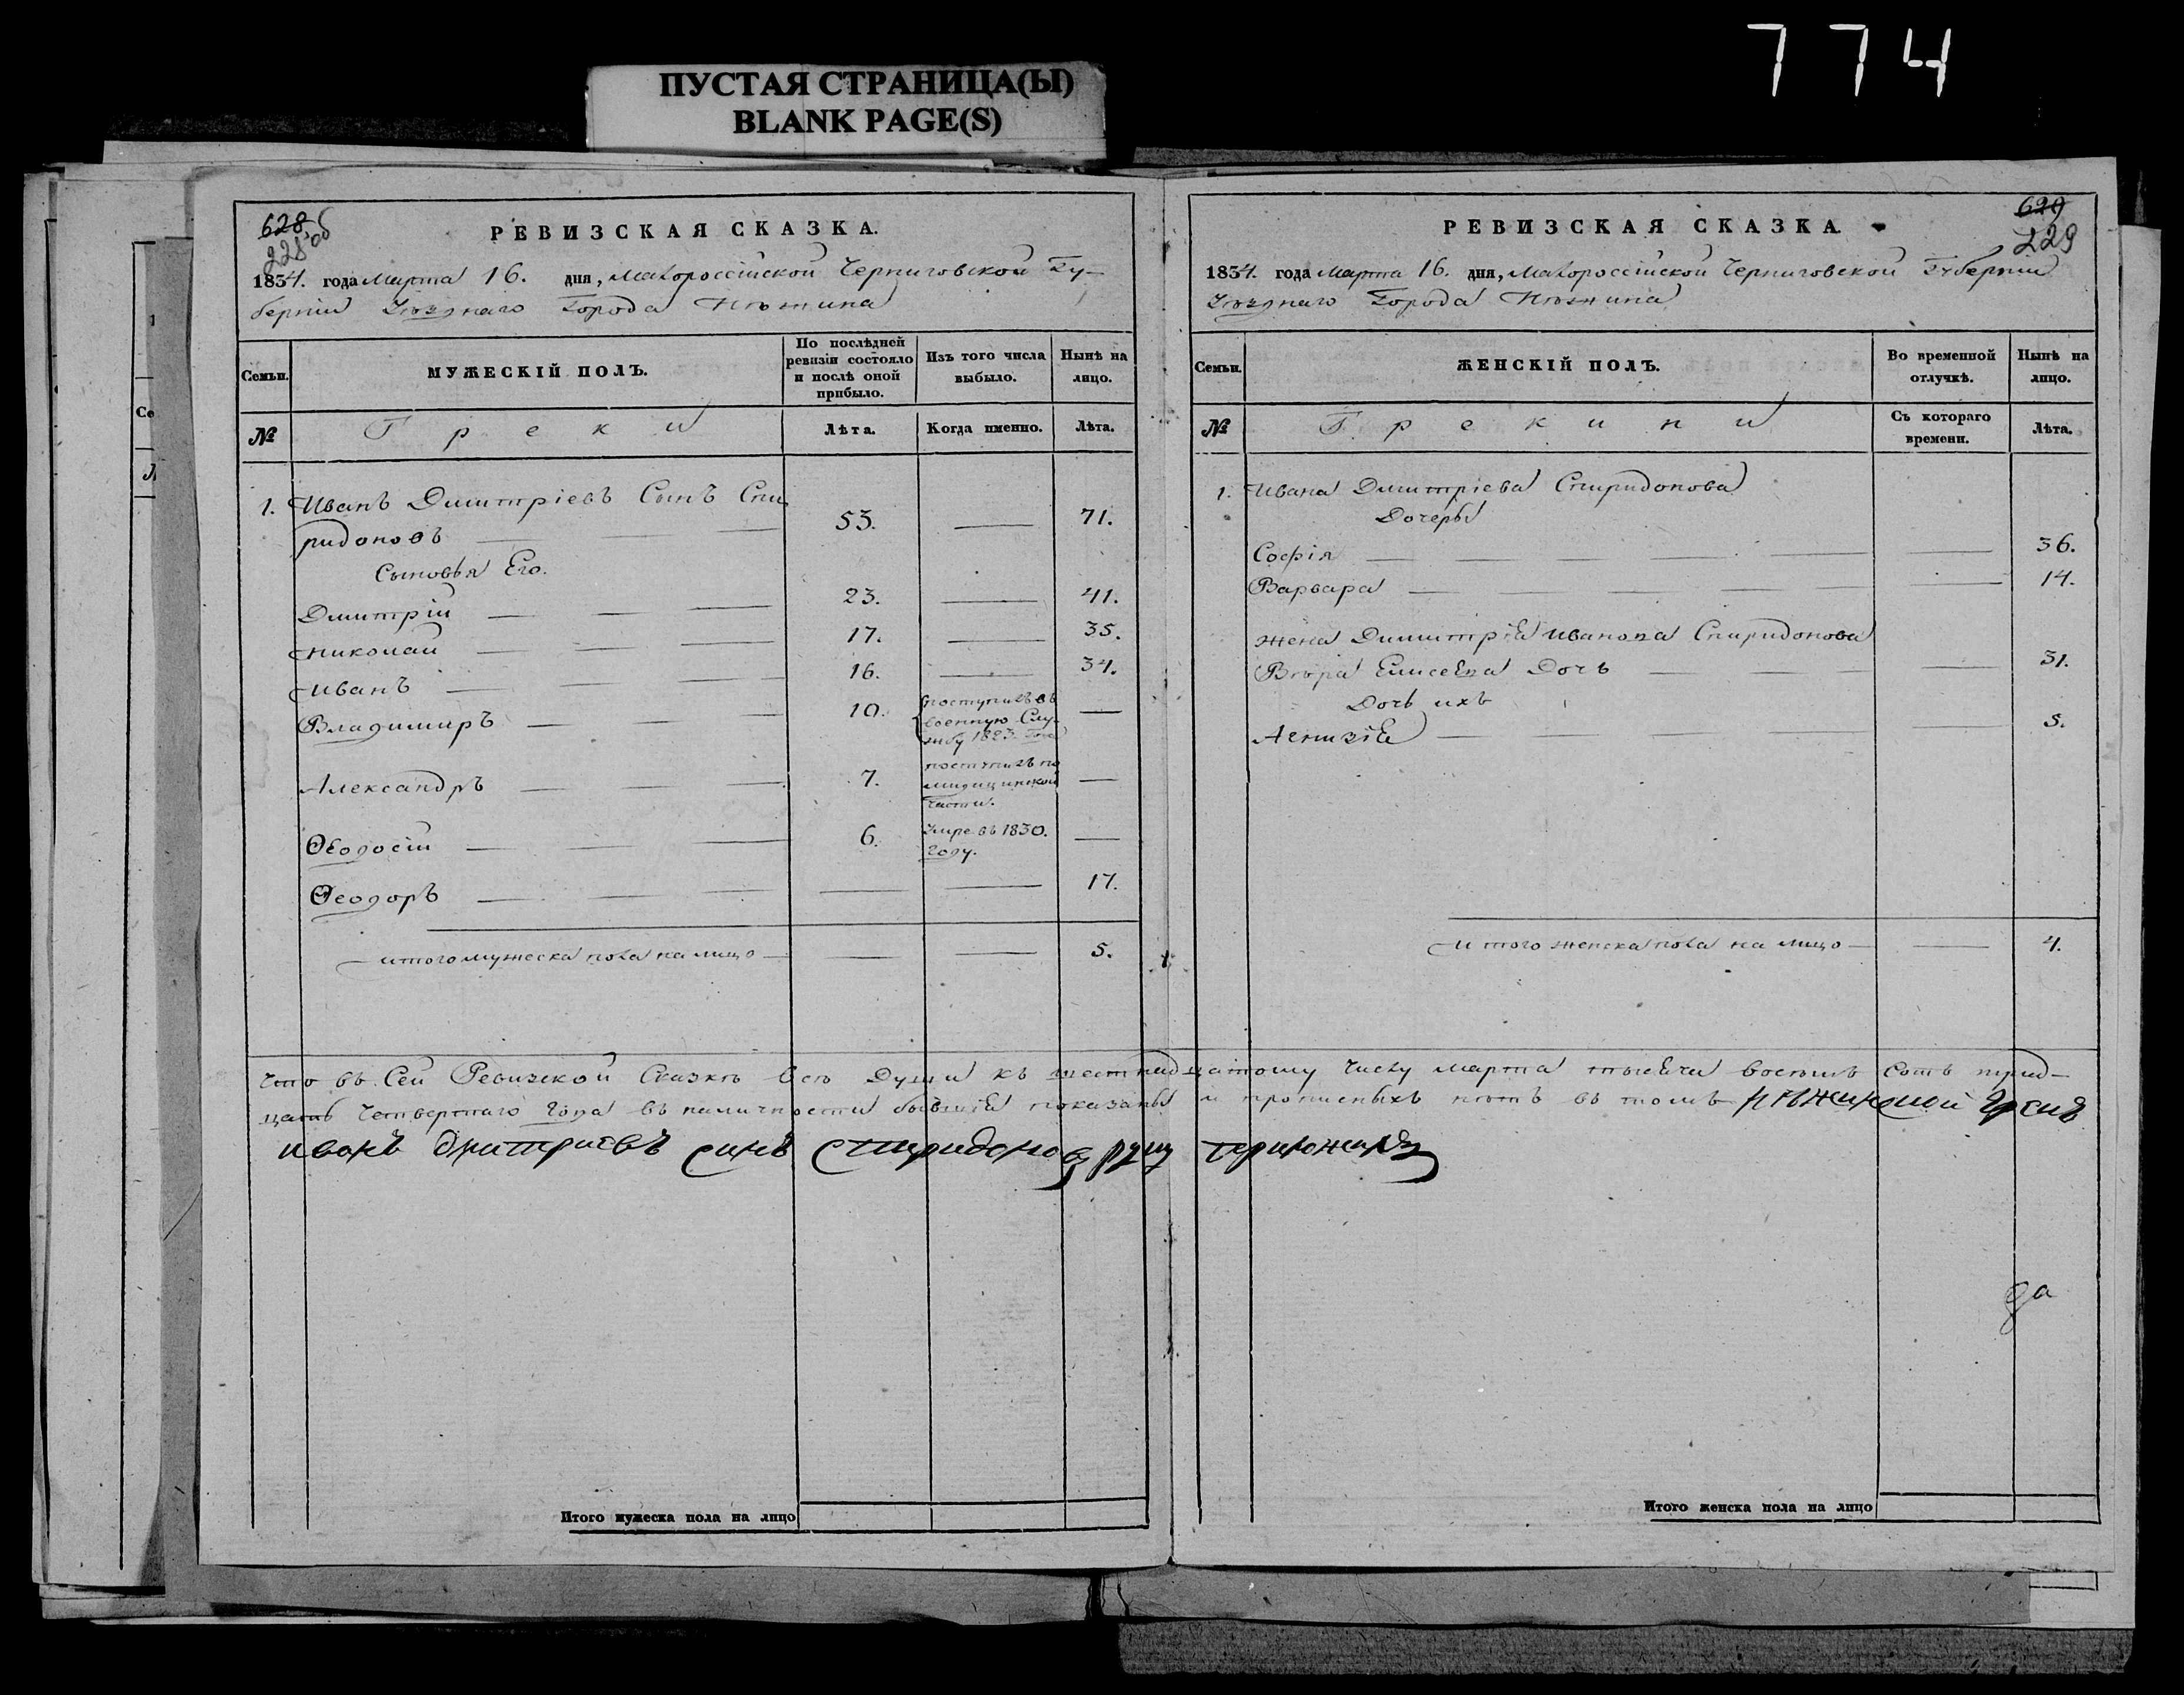 774
ПУСТАЯ СТРАНИЦА(Ы)
BLANK PAGE(S)
628
228 об
РЕВИЗСКАЯ СКАЗКА.
1834. года Марта 16. дня, Малороссійской Черниговской Гу-
берніи Уѣзднаго Города Нѣжина
Семьи.
МУЖЕСКІЙ ПОЛЪ.
По послѣдней ревизіи состояло и послѣ оной прибыло.
Изъ того числа выбыло.
Нынѣ на лицо.
№
Греки
Лѣта.
Когда именно.
Лѣта.
1. Иванъ Димитріевъ Сынъ Спи
ридоновъ — 53. — 71.
Сыновья Его.
Димитрій — 23. — 41.
Николай — 17. — 35.
Иванъ — 16. — 34.
Владимиръ — 10. поступилъ въ военную Службу 1823. Года —
Александръ — 7. поступилъ по мидицинской части. —
Ѳеодосій — 6. умре въ 1830. Году. —
Ѳеодоръ — — — 17.
итого мужеска пола на лицо — — — 5.
629
229
РЕВИЗСКАЯ СКАЗКА.
1834. года Марта 16. дня, Малороссійской Черниговской Губерніи
Уѣзднаго Города Нѣжина
Семьи.
ЖЕНСКІЙ ПОЛЪ.
Во временной отлучкѣ.
Нынѣ на лицо.
№
Грекини
Съ котораго времени.
Лѣта.
1. Ивана Димитріева Спиридонова
Дочеры
Софія — — 36.
Варвара — — 14.
жена Димитрія Иванова Спиридонова
Вѣра Елисеева Дочь — — 31.
Дочь ихъ
— — 5.
итого женска пола на лицо — — 4.
Что въ Сей Ревизской Сказкѣ всѣ Души къ шестнадцатому числу марта тысяча восемь сотъ трид-
цать Четвертаго Года въ наличности бывшія показаны и прописныхъ нѣтъ въ томъ нѣжинской Грекъ
иванъ дмитриевъ синъ спиридоновъ руку приложилъ
Итого мужеска пола на лицо
Итого женска пола на лицо